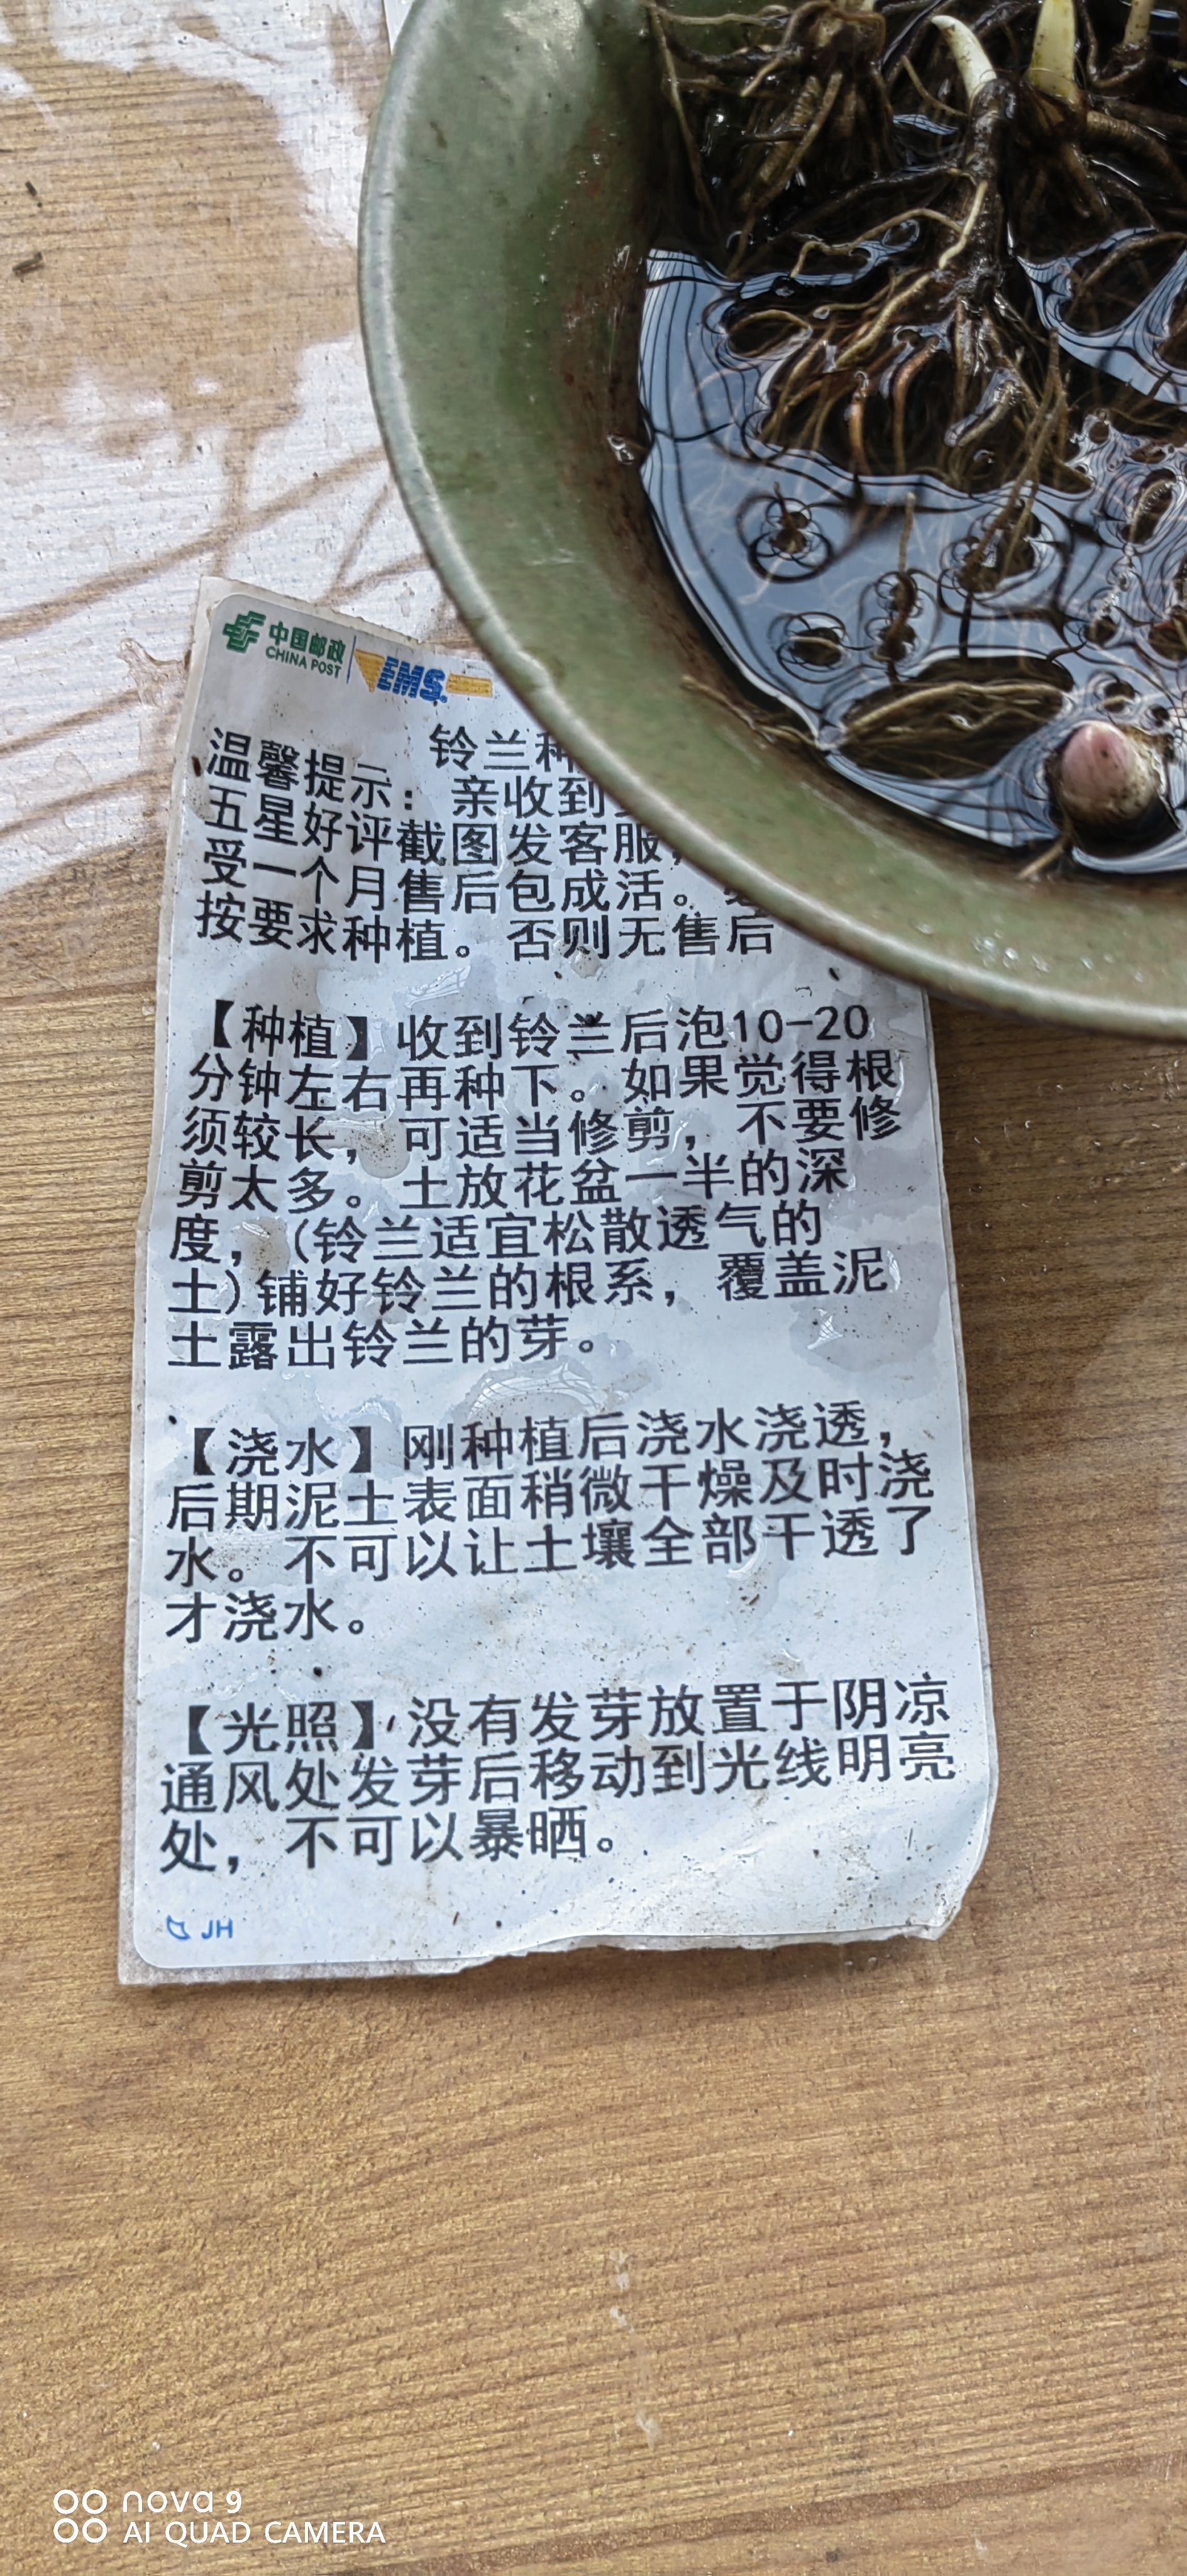 中国邮政
CHINA POST
EMS
铃兰种
温馨提示：亲收到
五星好评截图发客服，
受一个月售后包成活。
按要求种植。否则无售后
【种植】收到铃兰后泡10-20
分钟左右再种下。如果觉得根
须较长，可适当修剪，不要修
剪太多。土放花盆一半的深
度，（铃兰适宜松散透气的
土）铺好铃兰的根系，覆盖泥
土露出铃兰的芽。
【浇水】刚种植后浇水浇透，
后期泥土表面稍微干燥及时浇
水。不可以让土壤全部干透了
才浇水。
【光照】没有发芽放置于阴凉
通风处发芽后移动到光线明亮
处，不可以暴晒。
JH
nova 9
AI QUAD CAMERA